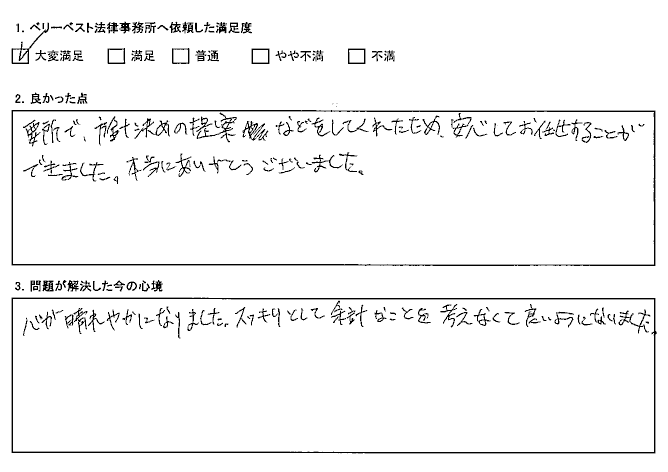 1. ベリーベスト法律事務所へ依頼した満足度
大変満足 満足 普通 やや不満 不満
2. 良かった点
要所で、方針決めの提案 などをしてくれたため、安心してお任せすることが
できました。本当にありがとうございました。
3. 問題が解決した今の心境
心が晴れやかになりました。スッキリとして余計なことを考えなくて良いようになりました。